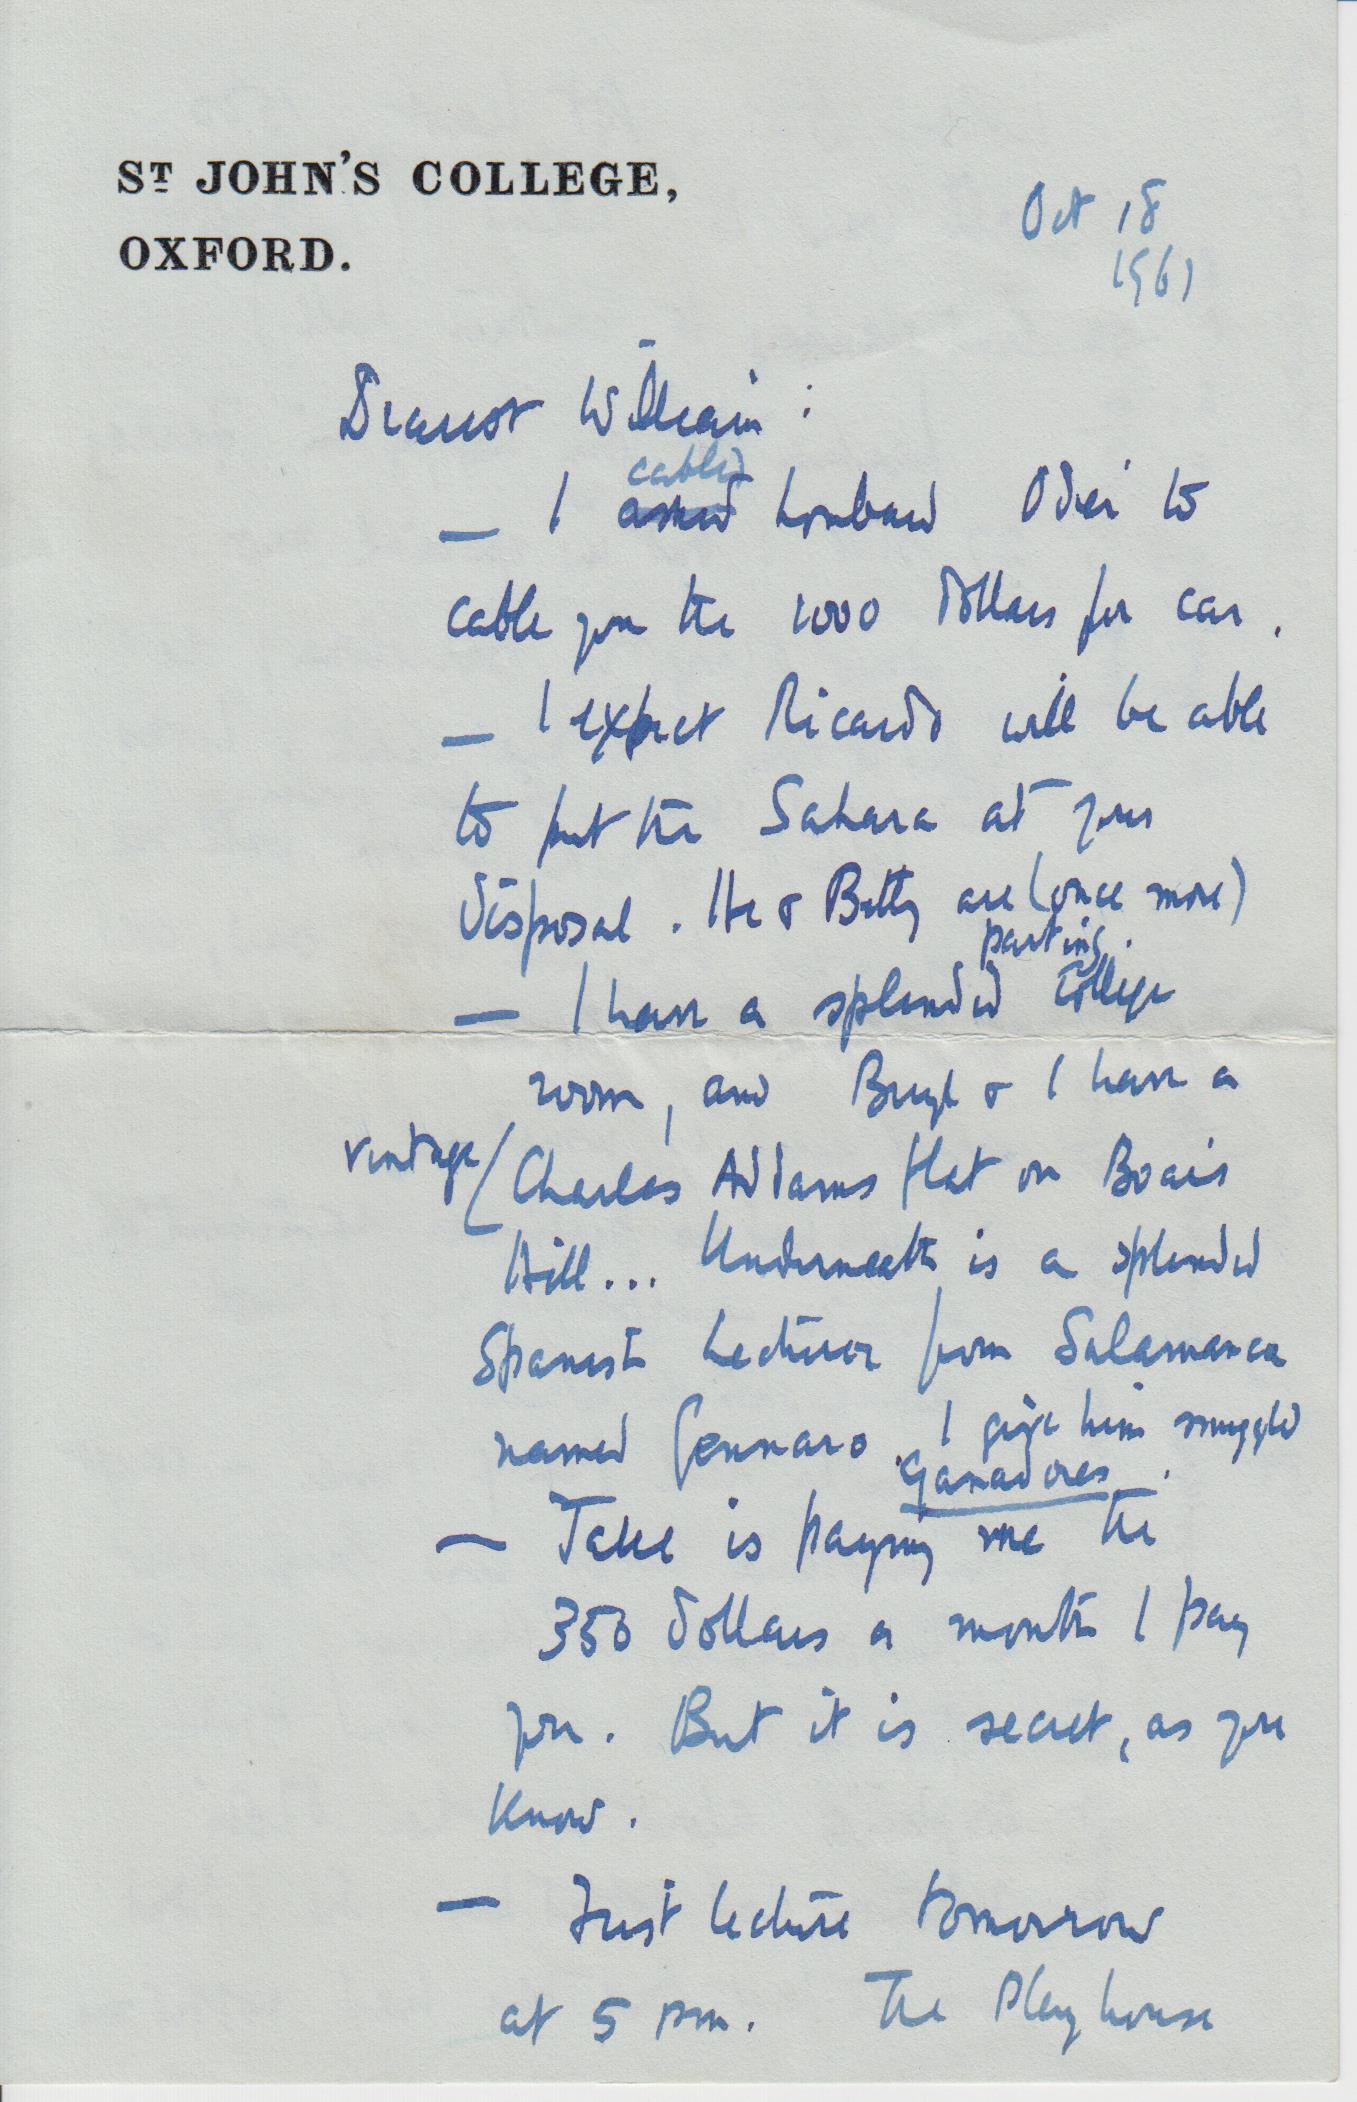 ST JOHN'S COLLEGE,
OXFORD.
Oct 18
1961
Dearest William :
cabled
— I asked Lombard Odier to
cable you the 1000 dollars for car.
— I expect Ricardo will be able
to put the Sahara at your
disposal. He & Betty are (once more)
parting.
— I have a splendid College
room, and Beryl & I have a
vintage / Charles Addams flat on Boars
Hill... Underneath is a splendid
Spanish Lecturer from Salamanca
named Gennaro. I give him smuggled
Ganadores.
— Jake is paying me the
350 dollars a month I pay
you. But it is secret, as you
know.
— First lecture tomorrow
at 5 pm. The Playhouse